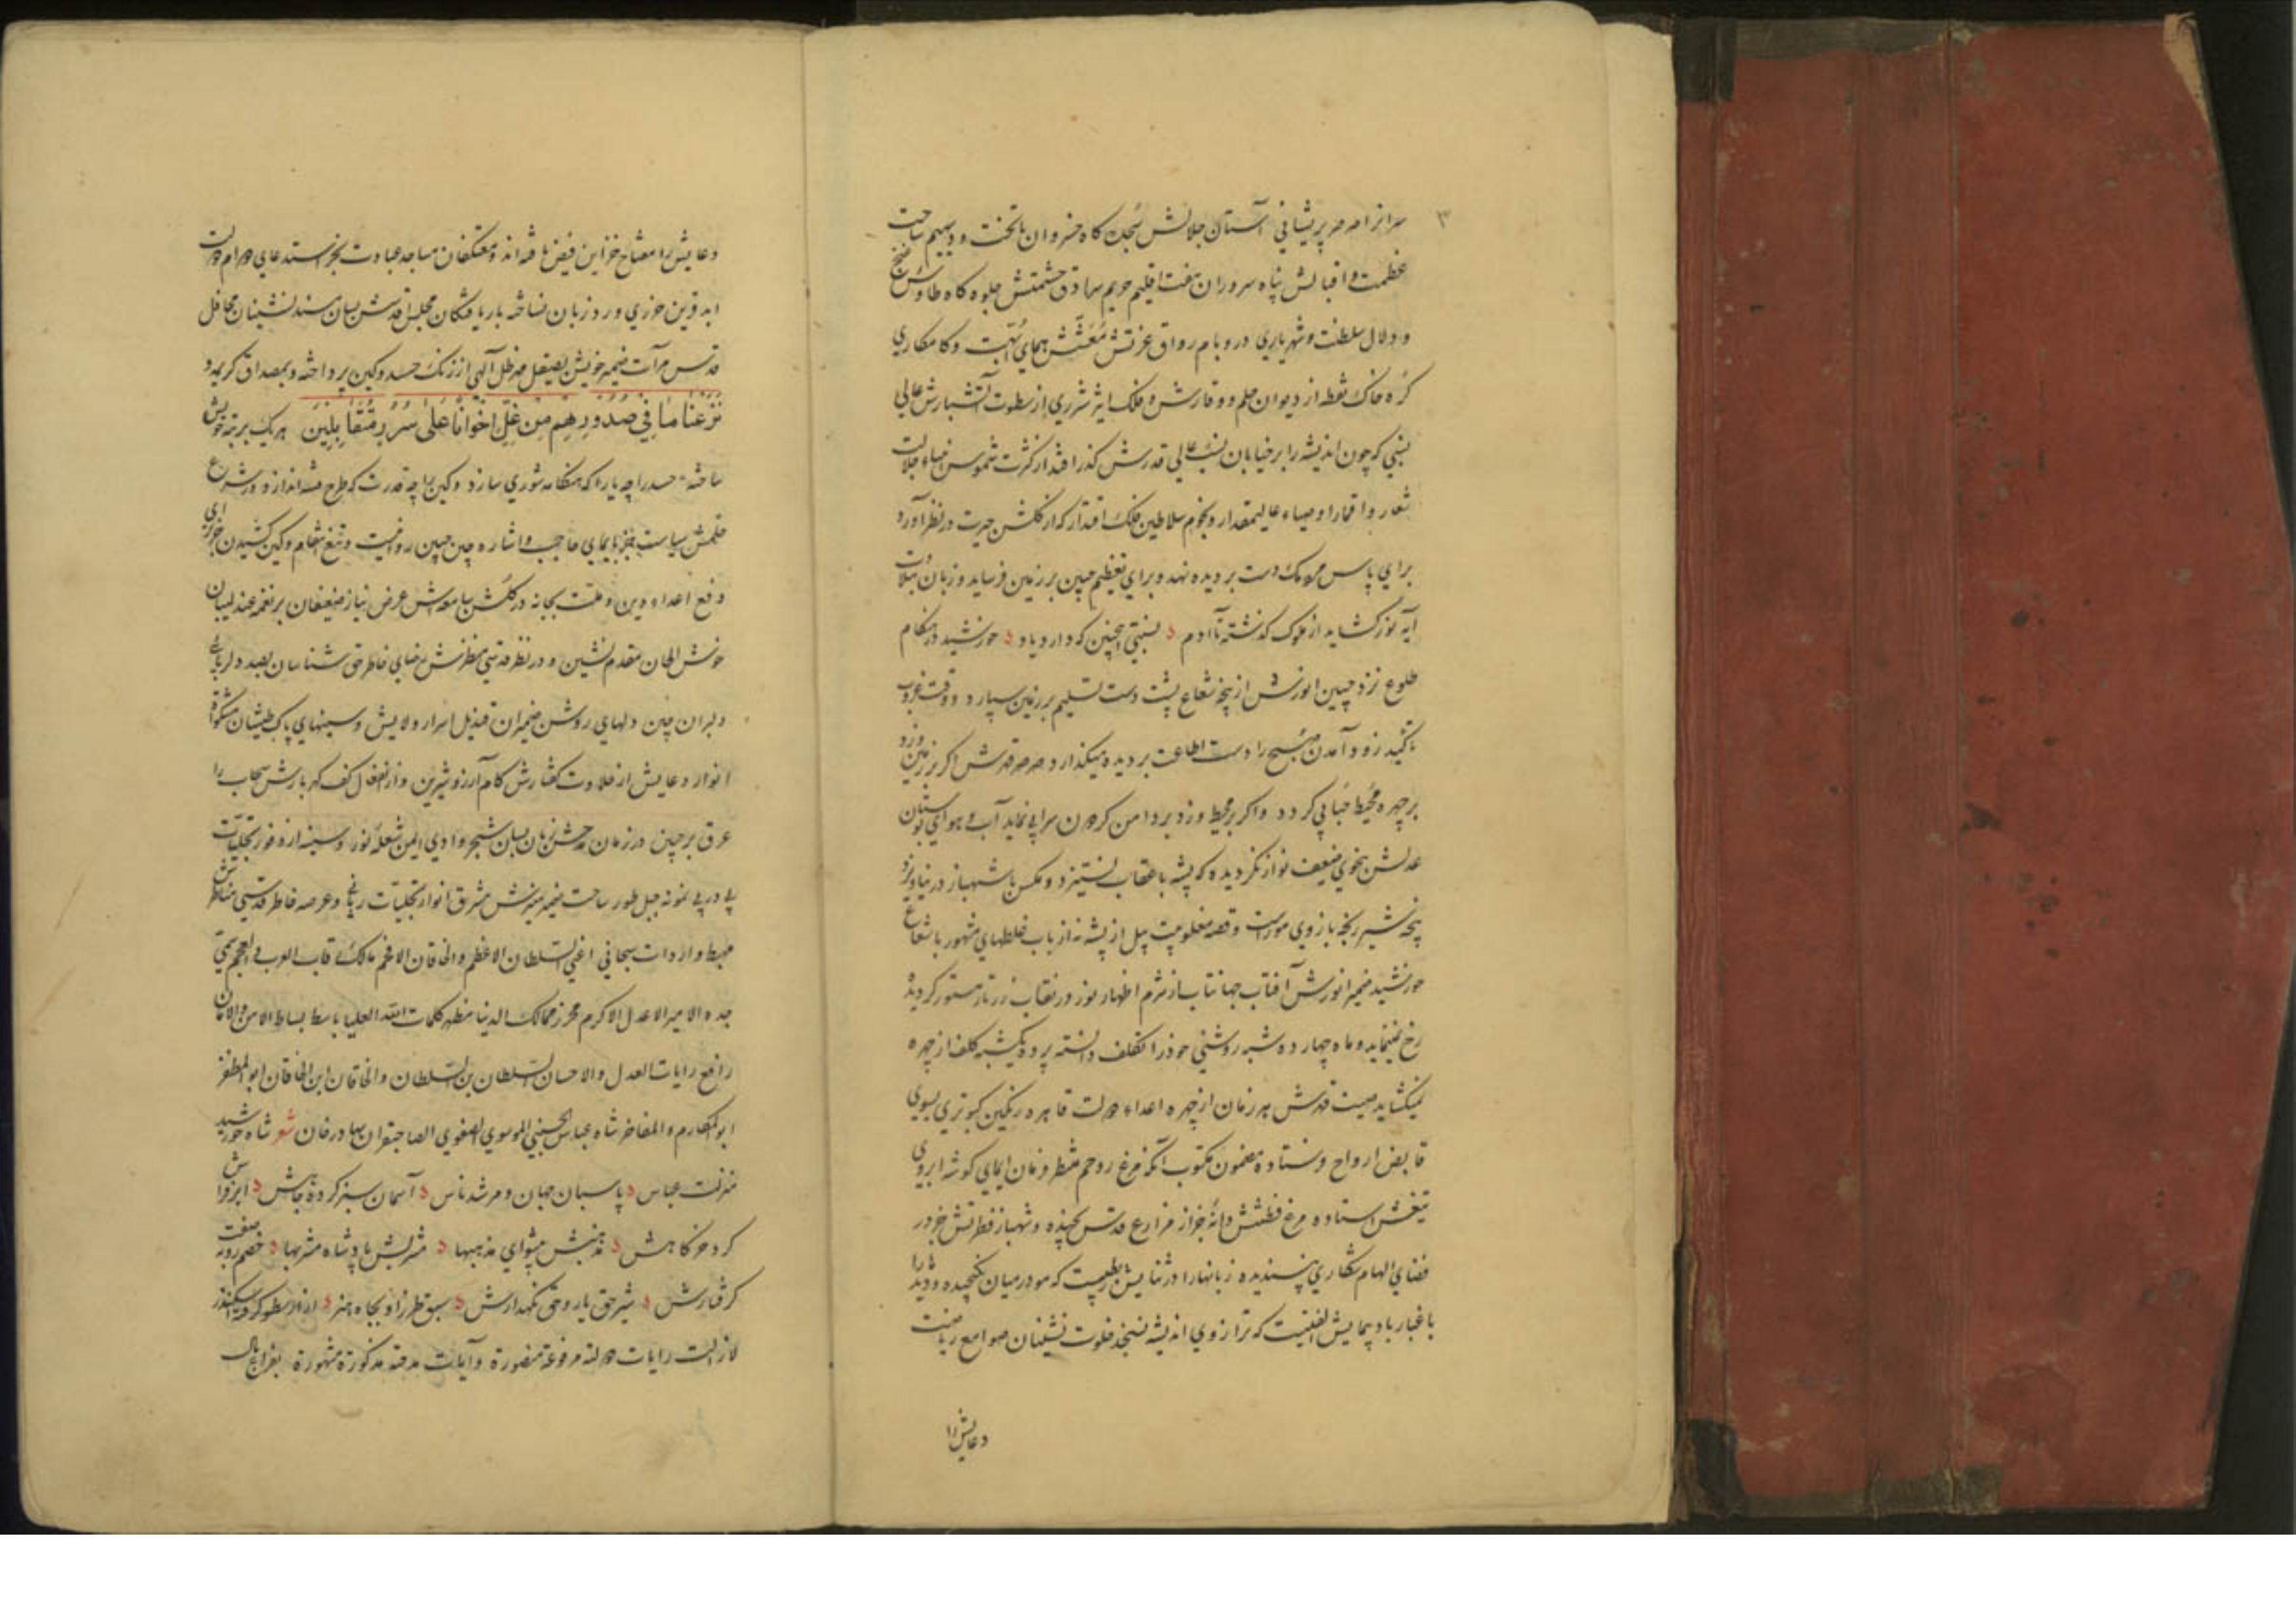 ۳
آستان جلالش سجده کاه خسروان با تخت و دیهیم ساحت
عظمت و اقبالش پناه سروران هفت اقلیم حریم سرادق حشمتش جلوه کاه طاوس
و دلال سلطنت و شهریاری در و بام رواق عزتش معشش همای ابهت و کامکاری
کره خاک نقطه از دیوان حلم و وقارش و فلک اثیر شرری از سطوت آتشبارش عالی
نسبی که چون اندیشه را بر خیابان نسب عالی قدرش کذر افتد از کثرت شموس ضیاء جلالت
شعار و اقمار اوصیاء عالیمقدار و نجوم سلاطین فلک اقتدار که از کلشن حیرت در نظر آورد
برای پاس مردمک دست بر دیده نهد و برای تعظیم جبین بر زمین فرساید و زبان بتلاوت
آیه نور کشاید از ملوک کذشته تا آدم نسبتی اینچنین که دارد یاد خورشید در هنکام
طلوع نزد جبین انورش از پنجه شعاع پشت دست تسلیم بر زمین سپارد و وقت غروب
تاکید زود آمدن صبح را دست اطاعت بر دیده میکذارد صرصر قدرش اکر بر زمین وزد
بر چهره محیط حبابی کردد و اکر بر محیط وزد بر دامن کردون سرابی نماید آب و هوای بوستان
عدلش بنحوی ضعیف نواز نکردیده که پشه با عقاب نستیزد و مکس با شهباز در نیاویزد
پنجه شیر رنجه بازوی مور است و قصه مغلوبیت پیل از پشه نه از باب غلطهای مشهور با شعاع
خورشید ضمیر انورش آفتاب جهانتاب از شرم اظهار نور در نقاب زرتار مستور کردیده
رخ نمینماید و ماه چهارده شبه روشنی خود را تکلف دانسته پرده یکشبه کلف از چهره
نمیکشاید صیت قدرش هر زمان از چهره اعداء دولت قاهره رنکین کبوتری بسوی
قابض ارواح فرستاده مضمون مکتوب آنکه مرغ روحم منتظر فرمان ایمای کوشه ابروی
تیغش استاده مرغ فطنتش دانه جز از مزارع قدس نچیده و شهباز فطرتش جز در
فضای الهام شکاری نپسندیده زبانها را در ثنایش ربطیست که مو در میان نکنجیده و دیده را
با غبار باد پیمایش الفتیست که ترازوی اندیشه نسنجد خلوت نشینان صوامع ریاضت
دعایش را
دعایش را مفتاح خزاین فیض یافته اند و معتکفان مساجد عبادت بجز استدعای دوام دولت
ابد قرین حرزی ورد زبان نساخته باریافتکان مجلس قدسش بسان مسند نشینان محافل
قدس مرآت ضمیر خویش بصیقل مهر ظل آلهی از زنک حسد و کین پرداخته و بمصداق کریمه و
نَزَعْنَا مَا فِی صُدُورِهِم مِن غِلٍّ اِخْوَاناً عَلَی سُرُرٍ مُتَقَابِلِینَ هر یک بر تبه خویش
ساخته حسد را چه یارا که هنکامه شوری سازد و کین را چه قدرت که طرح فتنه اندازد در شرع
حکمش سیاست جز بایمای حاجب و اشاره چین جبین روا نیست و تیغ انتقام و کین کشیدن جز برای
دفع اعداء دین و ملت بجا نه در کلشن سامعه اش عرض نیاز ضعیفان بر نغمه عندلیبان
خوش الحان مقدم نشین و در نظر قدسی منظرش رضای خاطر حق شناسان بصد دلربائی
دلبران چین دلهای روشن ضمیران قندیل اسرار ولایش و سینهای پاک طینتان مشکوة
انوار دعایش از حلاوت کفتارش کام آرزو شیرین و از انفعال کف کهربارش سحاب را
عرق بر جبین در زمان مدحش زبان بسان شجر وادی ایمن شعله نور و سینه از وفور تجلیات
پی در پی نمونه جبل طور ساحت ضمیر منیرش مشرق انوار تجلیات ربانی و عرصه خاطر قدسی مناظرش
مهبط واردات سبحانی اعنی السلطان الاعظم والخاقان الافخم مالک رقاب العرب والعجم سمی
جده الامیر الاعدل الاکرم محرز ممالک الدنیا مظهر کلمات الله العلیا باسط بساط الامن والامان
رافع رایات العدل والاحسان السلطان بن السلطان والخاقان ابن الخاقان ابو المظفر
ابو المکارم والمفاخر شاه عباس الحسینی الموسوی الصفوی الصاحبقران بهادرخان شعر شاه خورشید
منزلت عباس پاسبان جهان و مرشد ناس آسمان سبز کرده جاهش ابر فراش
کرد خرکاهش مذهبش پیشوای مذهبها مشربش پادشاه مشربها خصم روبه صفت
کرفتارش شیر حق یار و حق نکهدارش
لازالت رایات دولته مرفوعة منصورة و آیات مدحته مذکورة مشهورة